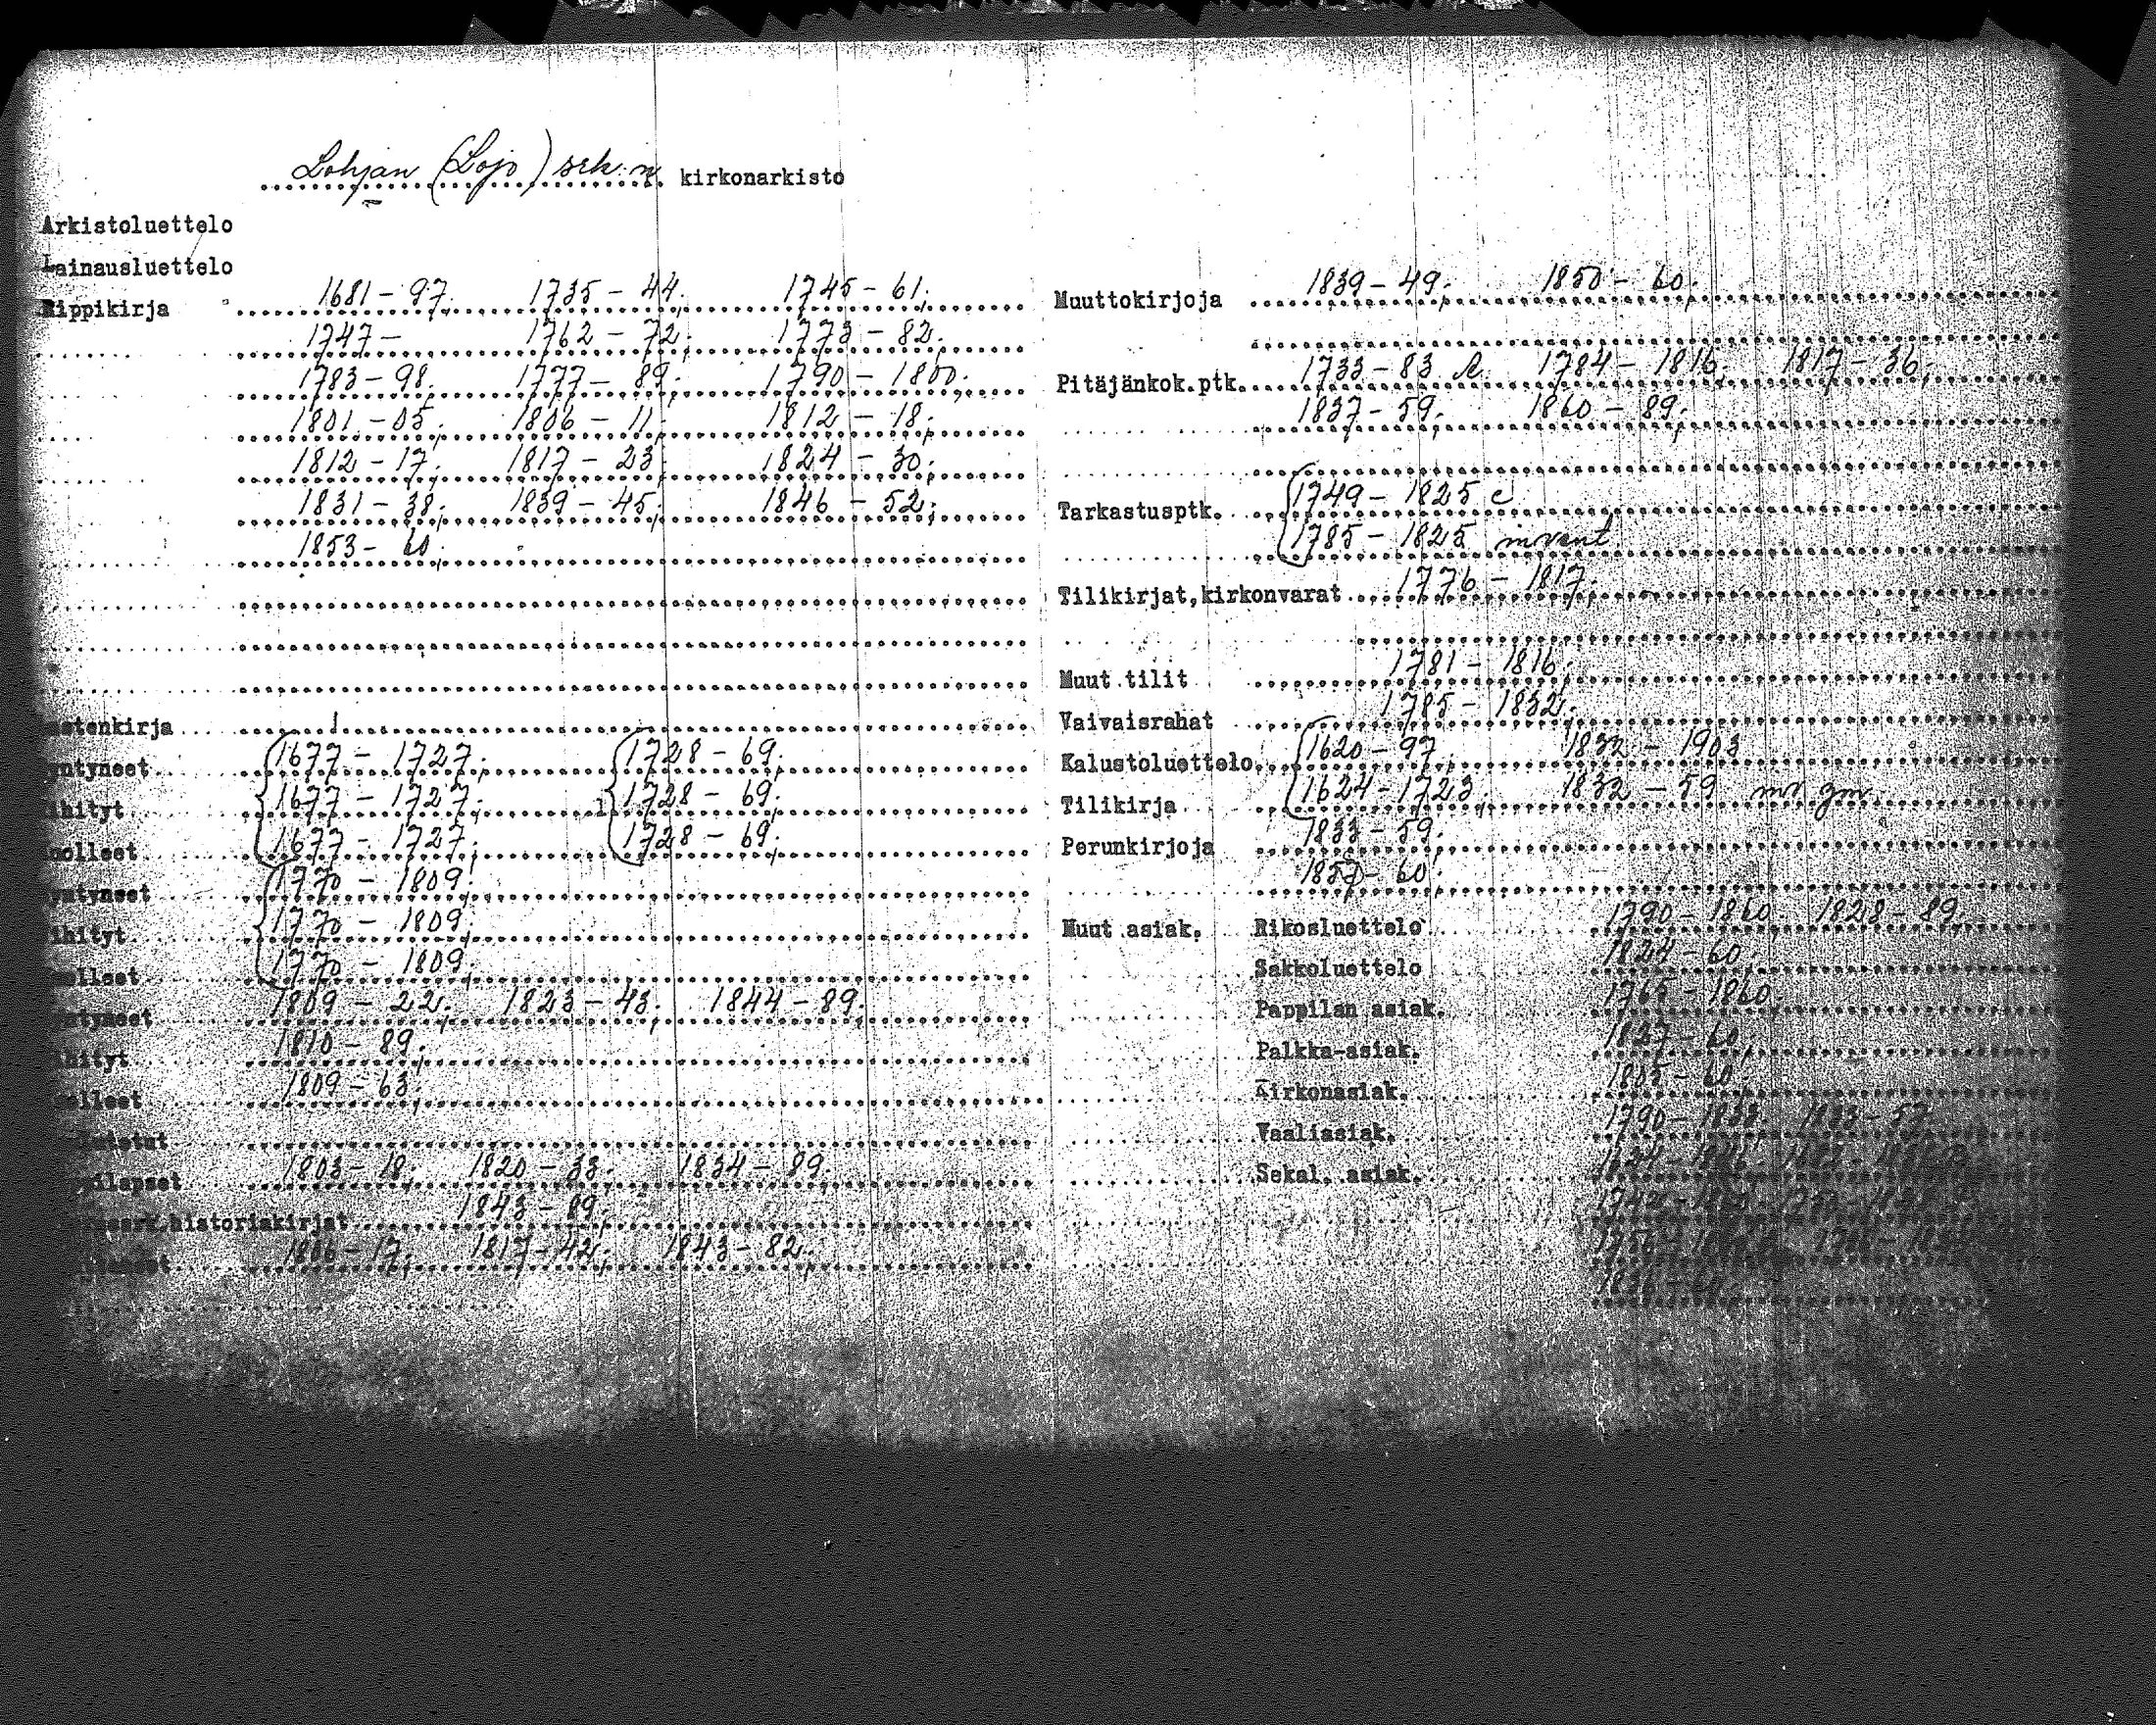 Lohjan (Lojo) srk:n kirkonarkisto
Arkistoluettelo
Lainausluettelo
Rippikirja 1681-97. 1735-44. 1745-61.
1747- 1762-72. 1773-82.
1783-98. 1777-89. 1790-1800.
1801-05. 1806-11. 1812-18.
1812-17. 1817-23. 1824-30.
1831-38. 1839-45. 1846-52.
1853-60.
astenkirja
yntyneet 1677-1727. 1728-69.
ihityt 1677-1727. 1728-69.
uolleet 1677-1727. 1728-69.
yntyneet 1770-1809.
ihityt 1770-1809.
uolleet 1770-1809.
ntyneet 1809-22. 1823-43. 1844-89.
ihityt 1810-89.
olleet 1809-63.
1803-18. 1820-33. 1834-89.
historiakirjat 1843-89.
1806-17. 1817-42. 1843-82.
Muuttokirjoja 1839-49. 1850-60.
Pitäjänkok.ptk. 1733-83 1784-1816. 1817-36.
1837-59. 1860-89.
Tarkastusptk. 1749-1825 c
1785-1825 invent.
Tilikirjat,kirkonvarat 1776-1817.
Muut tilit 1781-1816.
Vaivaisrahat 1785-1832.
Kalustoluettelo 1620-97. 1832-1903
Tilikirja 1624-1723. 1832-59
Perunkirjoja 1833-59.
-60.
Muut asiak. Rikosluettelo 1790-1860. 1828-89.
Sakkoluettelo 1824-60.
Pappilan asiak. 1765-1860.
Palkka-asiak. 1827-60.
Kirkonasiak. 1805-60.
Vaaliasiak. 1790-
Sekal. asiak.